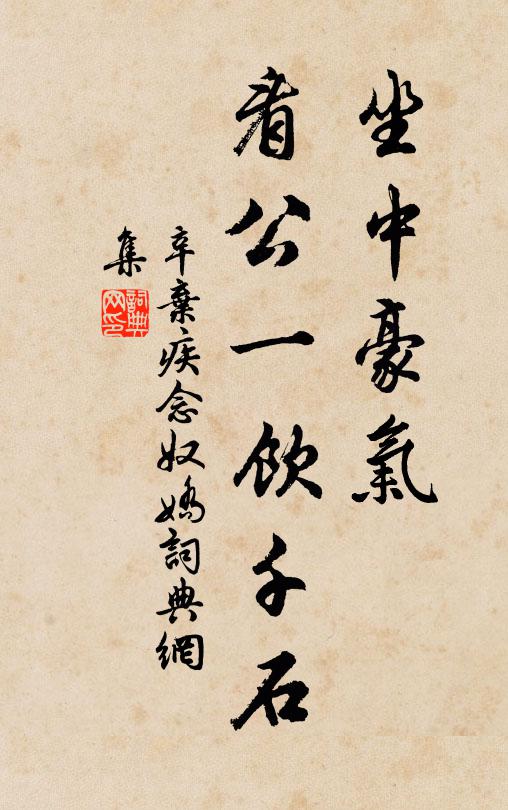 坐中豪氣
看公一飲千石
辛棄疾念奴嬌詞典網
集
詞典網印